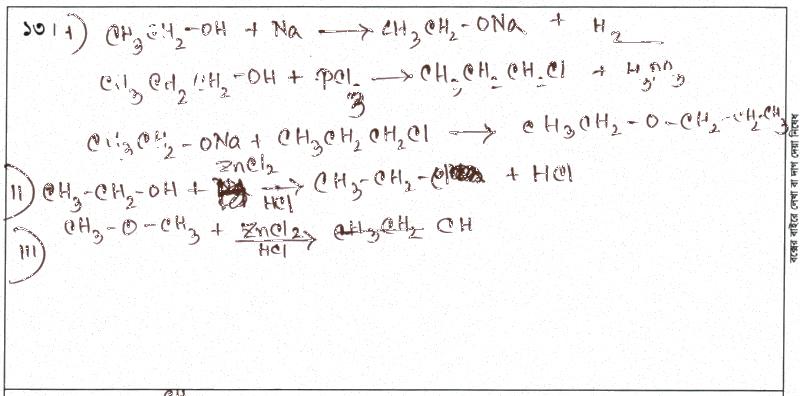 ১৩। i) CH3CH2-OH + Na ⟶ CH3CH2-ONa + H2
CH3CH2CH2-OH + PCl3 ⟶ CH3CH2CH2Cl + H3PO3
CH3CH2-ONa + CH3CH2CH2Cl ⟶ CH3CH2-O-CH2-CH2CH3
ii) CH3-CH2-OH + ZnCl2 HCl ⟶ CH3-CH2-Cl + HCl
iii) CH3-O-CH3 + ZnCl2 HCl ⟶ CH3CH2 CH
বক্সের বাইরে লেখা বা দাগ দেয়া নিষেধ